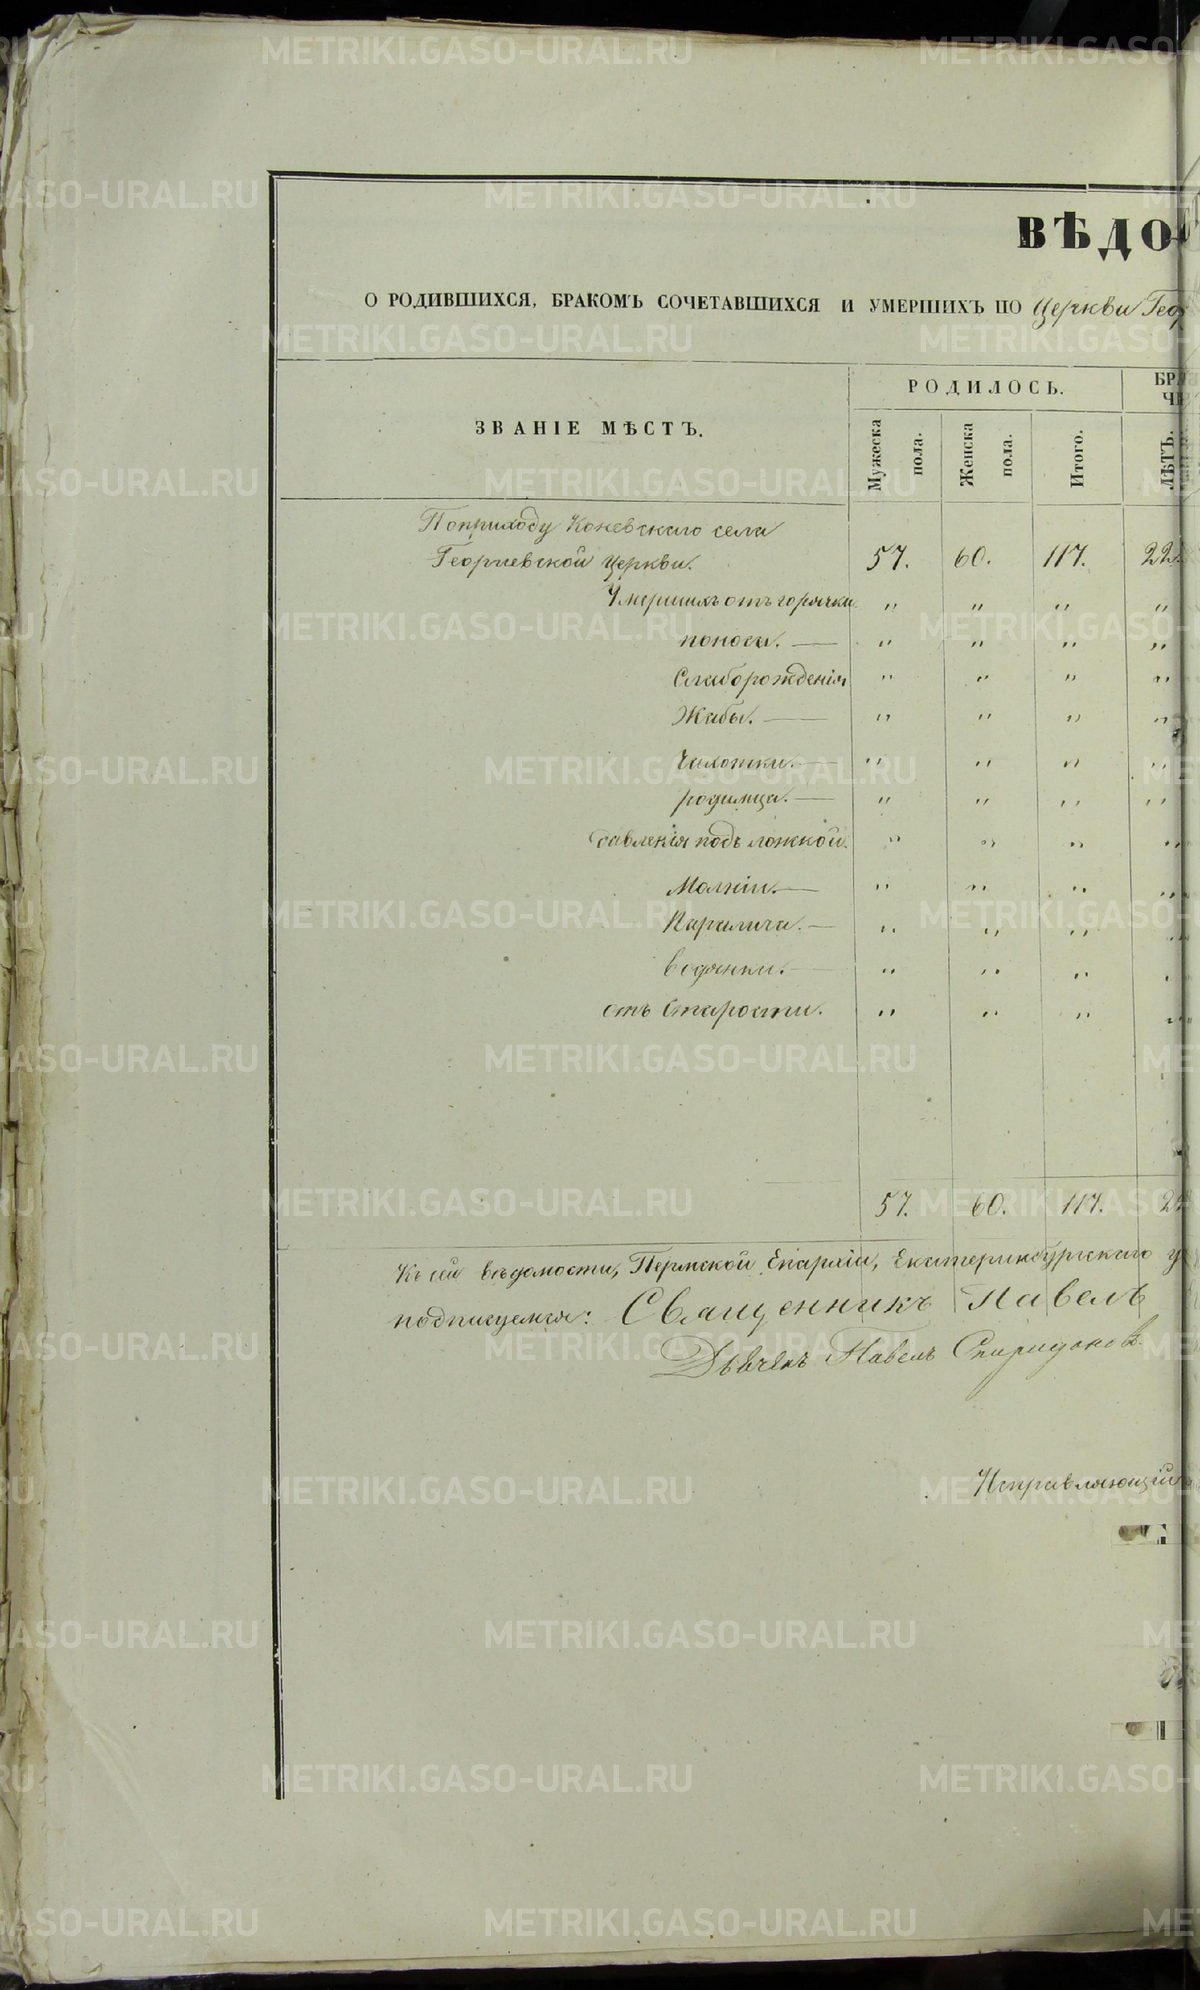 ВѢДО
О РОДИВШИХСЯ, БРАКОМЪ СОЧЕТАВШИХСЯ И УМЕРШИХЪ ПО Церкви Геор
ЗВАНІЕ МѢСТЪ.
РОДИЛОСЬ.
БРА
Мужеска пола.
Женска пола.
Итого.
ЛѢТЪ.
По приходу Коневскаго села
Георгиевской Церкви. 57. 60. 117. 22
Умершихъ отъ горячки. „ „ „ „
поноса. — „ „ „ „
Слаборожденія „ „ „ „
Жабы. — „ „ „ „
Чахотки. — „ „ „ „
родимца. — „ „ „ „
давленія подъ ложкой. „ „ „ „
Молніи. — „ „ „ „
Паралича. — „ „ „ „
водянки. — „ „ „ „
отъ Старости. „ „ „ „
57. 60. 117. 2
Къ сей вѣдомости, Пермской Епархіи, Екатеринбургскаго у
подписуемся: Священникъ Павелъ
Дьячекъ Павелъ Спиридоновъ.
Исправляющій
METRIKI.GASO-URAL.RU